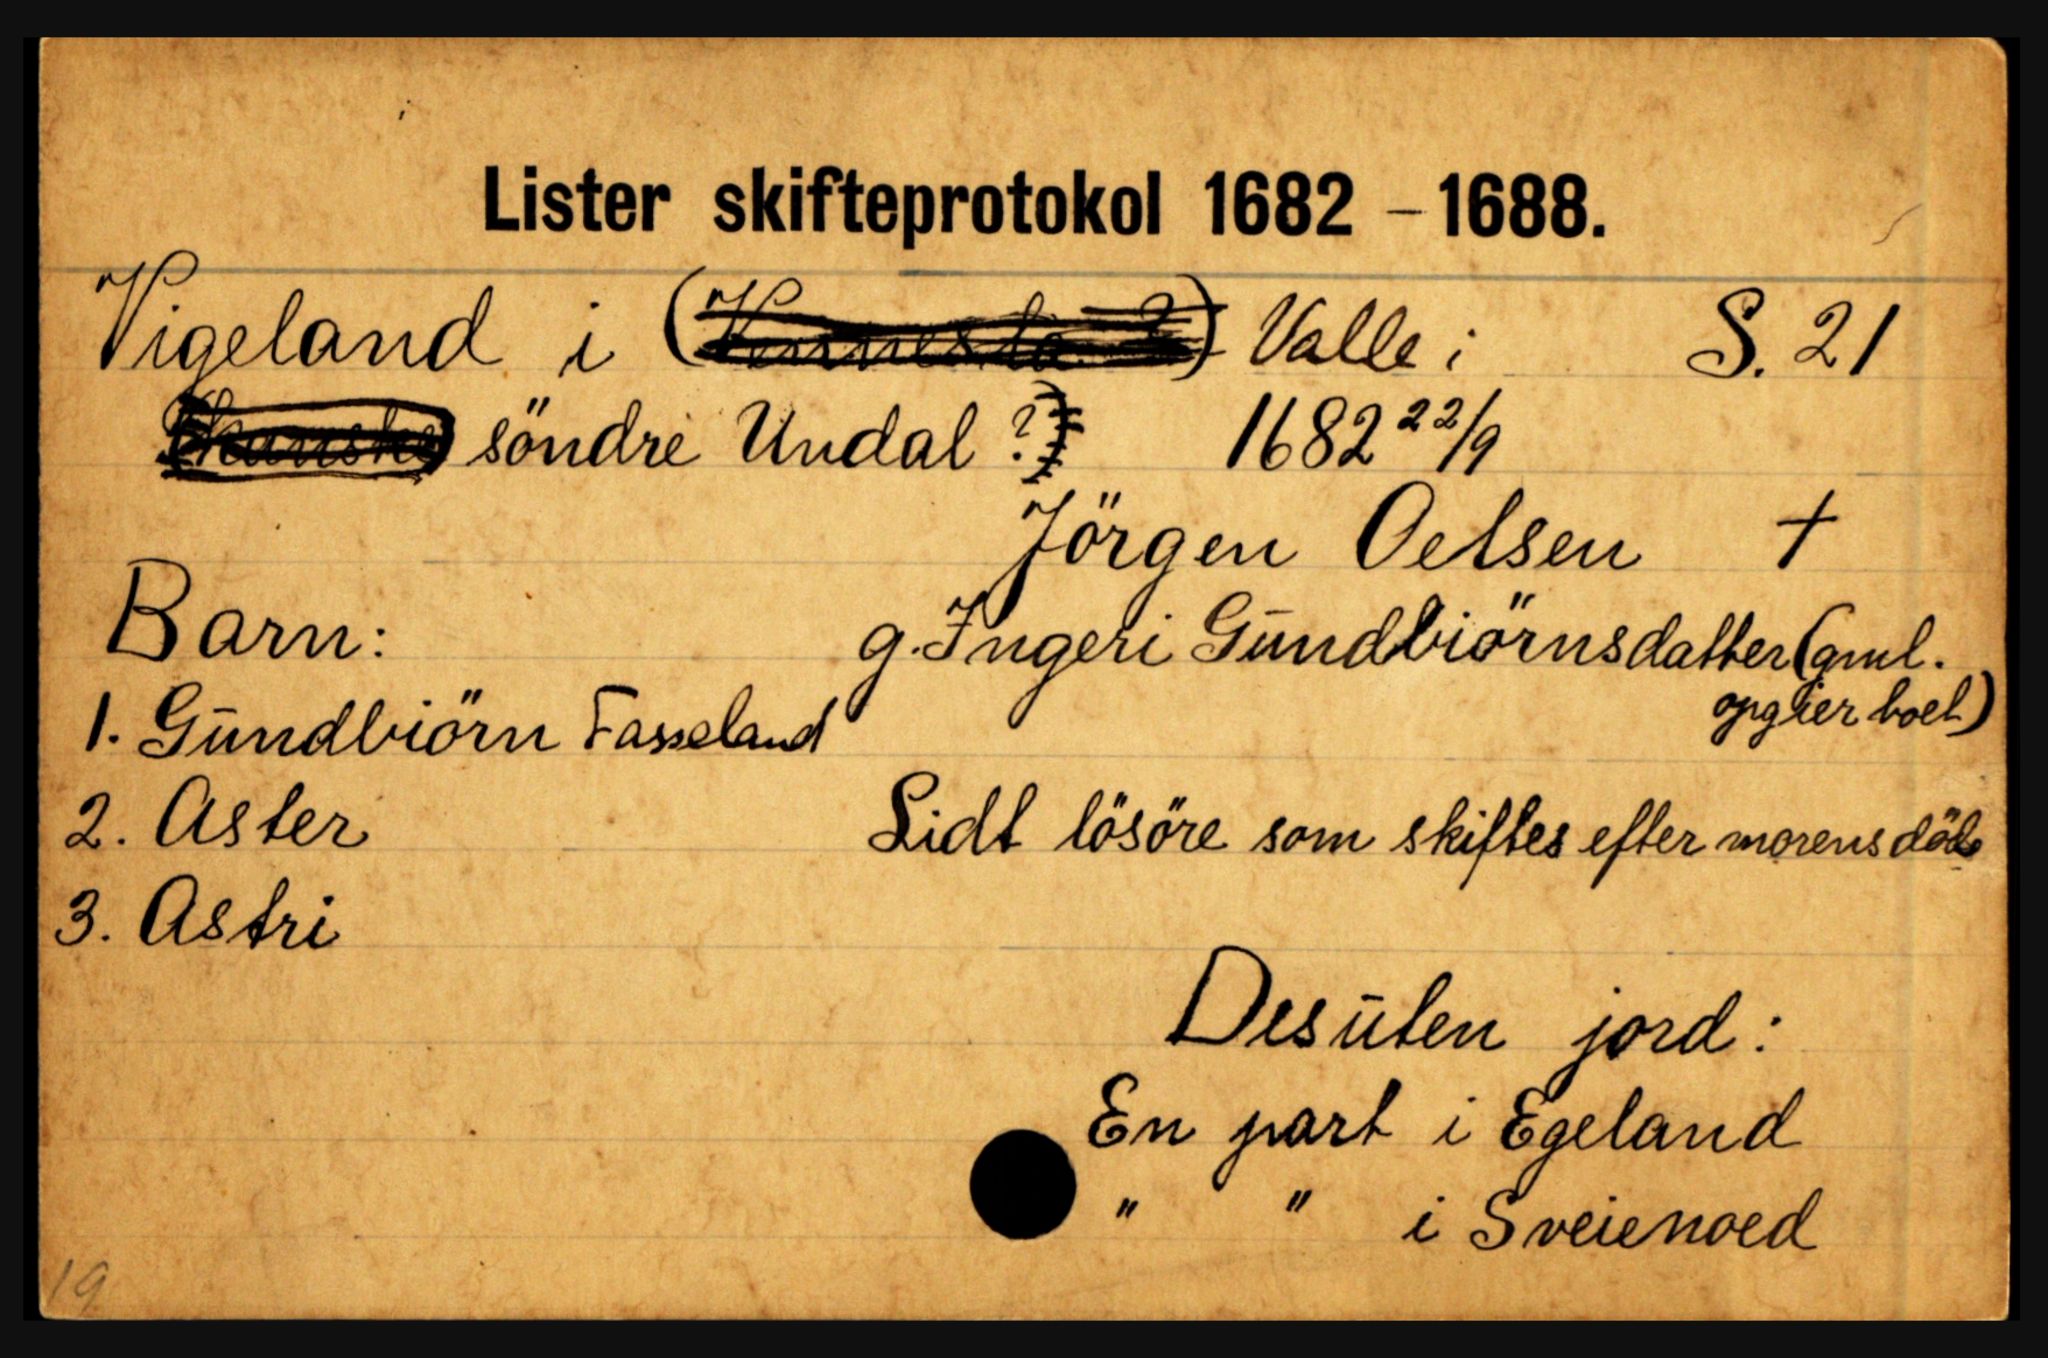 Lister skifteprotokol 1682 - 1688.
Vigeland i ( ) Valle i S. 21
söndre Undal ?) 1682 22/9
Jörgen Oelsen †
Barn: g. Ingeri Gūndbiörnsdatter (gml.
opgier boel)
1. Gūndbiörn Fasseland
2. Aster Lidt lösöre som skiftes efter morens död
3. Astri
Desūten jord:
En part i Egeland
" " i Sveienoed
19